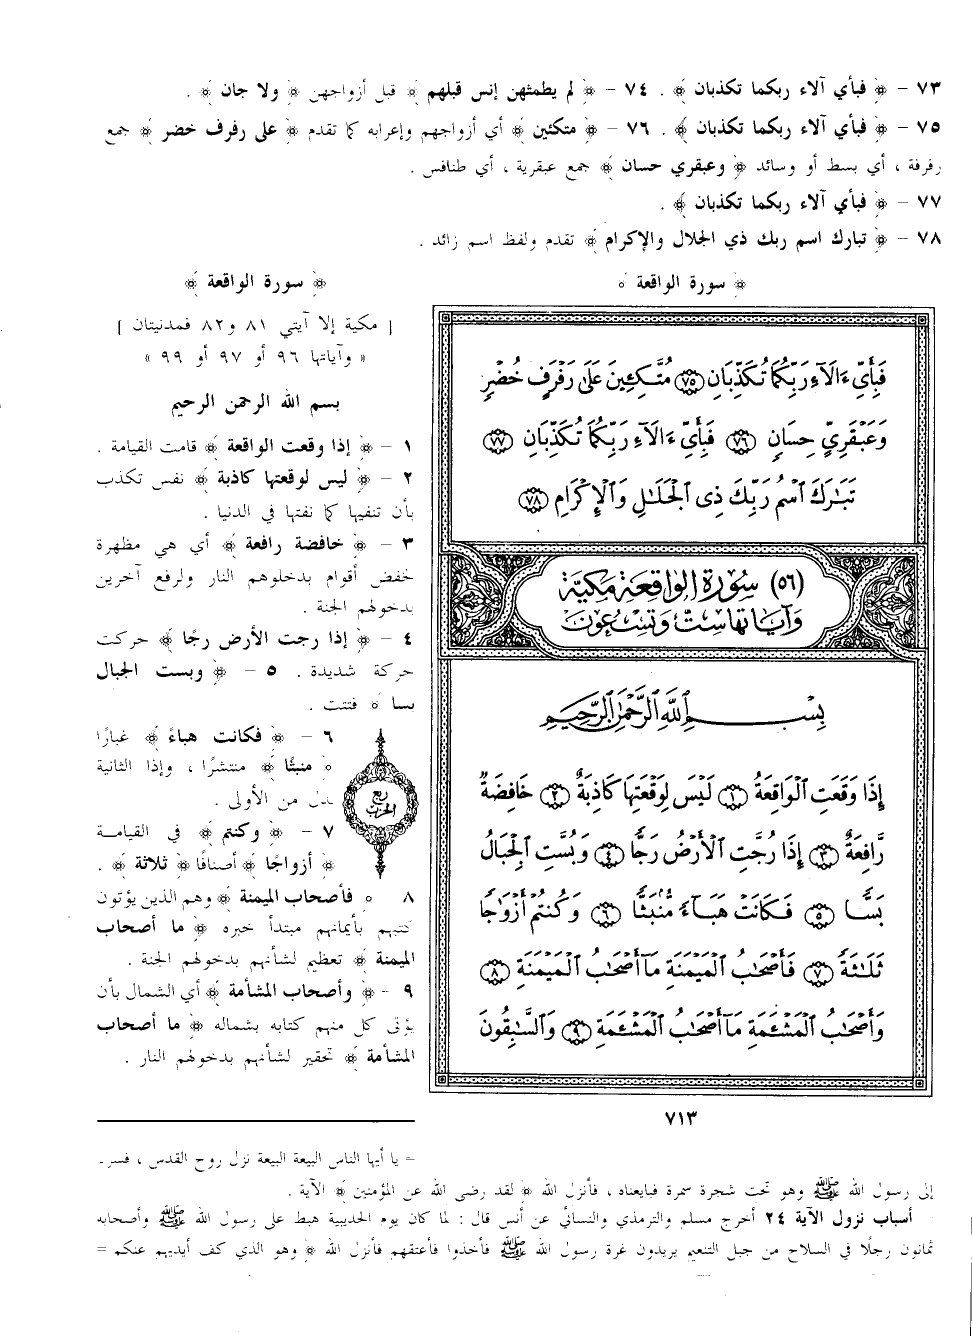 ٧٣ - ﴿ فبأي آلاء ربكما تكذبان ﴾ . ٧٤ - ﴿ لم يطمثهن إنس قبلهم ﴾ قبل أزواجهن ﴿ ولا جان ﴾ .
٧٥ - ﴿ فبأي آلاء ربكما تكذبان ﴾ . ٧٦ - ﴿ متكئين ﴾ أي أزواجهم وإعرابه كما تقدم ﴿ على رفرف خضر ﴾ جمع
رفرفة ، أي بسط أو وسائد ﴿ وعبقري حسان ﴾ جمع عبقرية ، أي طنافس .
٧٧ - ﴿ فبأي آلاء ربكما تكذبان ﴾ .
٧٨ - ﴿ تبارك اسم ربك ذي الجلال والإكرام ﴾ تقدم ولفظ اسم زائد .
﴿ سورة الواقعة ﴾
فَبِأَيِّ ءَالَآءِ رَبِّكُمَا تُكَذِّبَانِ ٧٥ مُتَّكِـِٔينَ عَلَىٰ رَفْرَفٍ خُضْرٍ
وَعَبْقَرِيٍّ حِسَانٍ ٧٦ فَبِأَيِّ ءَالَآءِ رَبِّكُمَا تُكَذِّبَانِ ٧٧
تَبَٰرَكَ ٱسْمُ رَبِّكَ ذِى ٱلْجَلَٰلِ وَٱلْإِكْرَامِ ٧٨
(٥٦) سُورَةُ الواقِعَةِ مَكيَّة
وَآيَاتُهَا سِتٌّ وَتِسْعُونَ
بِسْمِ ٱللَّهِ ٱلرَّحْمَٰنِ ٱلرَّحِيمِ
إِذَا وَقَعَتِ ٱلْوَاقِعَةُ ١ لَيْسَ لِوَقْعَتِهَا كَاذِبَةٌ ٢ خَافِضَةٌ
رَّافِعَةٌ ٣ إِذَا رُجَّتِ ٱلْأَرْضُ رَجًّا ٤ وَبُسَّتِ ٱلْجِبَالُ
بَسًّا ٥ فَكَانَتْ هَبَآءً مُّنۢبَثًّا ٦ وَكُنتُمْ أَزْوَٰجًا
ثَلَٰثَةً ٧ فَأَصْحَٰبُ ٱلْمَيْمَنَةِ مَآ أَصْحَٰبُ ٱلْمَيْمَنَةِ ٨
وَأَصْحَٰبُ ٱلْمَشْـَٔمَةِ مَآ أَصْحَٰبُ ٱلْمَشْـَٔمَةِ ٩ وَٱلسَّٰبِقُونَ
﴿ سورة الواقعة ﴾
[ مكية إلا آيتي ٨١ و٨٢ فمدنيتان ]
« وآياتها ٩٦ أو ٩٧ أو ٩٩ »
بسم الله الرحمن الرحيم
١ - ﴿ إذا وقعت الواقعة ﴾ قامت القيامة .
٢ - ﴿ ليس لوقعتها كاذبة ﴾ نفس تكذب
بأن تنفيها كما نفتها في الدنيا .
٣ - ﴿ خافضة رافعة ﴾ أي هي مظهرة
خفض أقوام بدخلوهم النار ولرفع آخرين
بدخولهم الجنة .
٤ - ﴿ إذا رجت الأرض رجًا ﴾ حركت
حركة شديدة . ٥ - ﴿ وبست الجبال
بسا ﴾ فتتت .
٦ - ﴿ فكانت هباءً ﴾ غبارًا
﴿ منبثًا ﴾ منتشرًا ، وإذا الثانية
بدل من الأولى .
ربع
الحزب
٧ - ﴿ وكنتم ﴾ في القيامة
﴿ أزواجًا ﴾ أصنافًا ﴿ ثلاثة ﴾ .
٨ ﴿ فأصحاب الميمنة ﴾ وهم الذين يؤتون
كتبهم بأيمانهم مبتدأ خبره ﴿ ما أصحاب
الميمنة ﴾ تعظيم لشأنهم بدخولهم الجنة .
٩ - ﴿ وأصحاب المشأمة ﴾ أي الشمال بأن
يؤتى كل منهم كتابه بشماله ﴿ ما أصحاب
المشأمة ﴾ تحقير لشأنهم بدخولهم النار .
٧١٣
= يا أيها الناس البيعة البيعة نزل روح القدس ، فسر-
إلى رسول الله ﷺ وهو تحت شجرة سمرة فبايعناه ، فأنزل الله ﴿ لقد رضى الله عن المؤمنين ﴾ الآية .
أسباب نزول الآية ٢٤ أخرج مسلم والترمذي والنسائي عن أنس قال : لما كان يوم الحديبية هبط على رسول الله ﷺ وأصحابه
ثمانون رجلًا في السلاح من جبل التنعيم يريدون غرة رسول الله ﷺ فأخذوا فأعتقهم فأنزل الله ﴿ وهو الذي كف أيديهم عنكم =